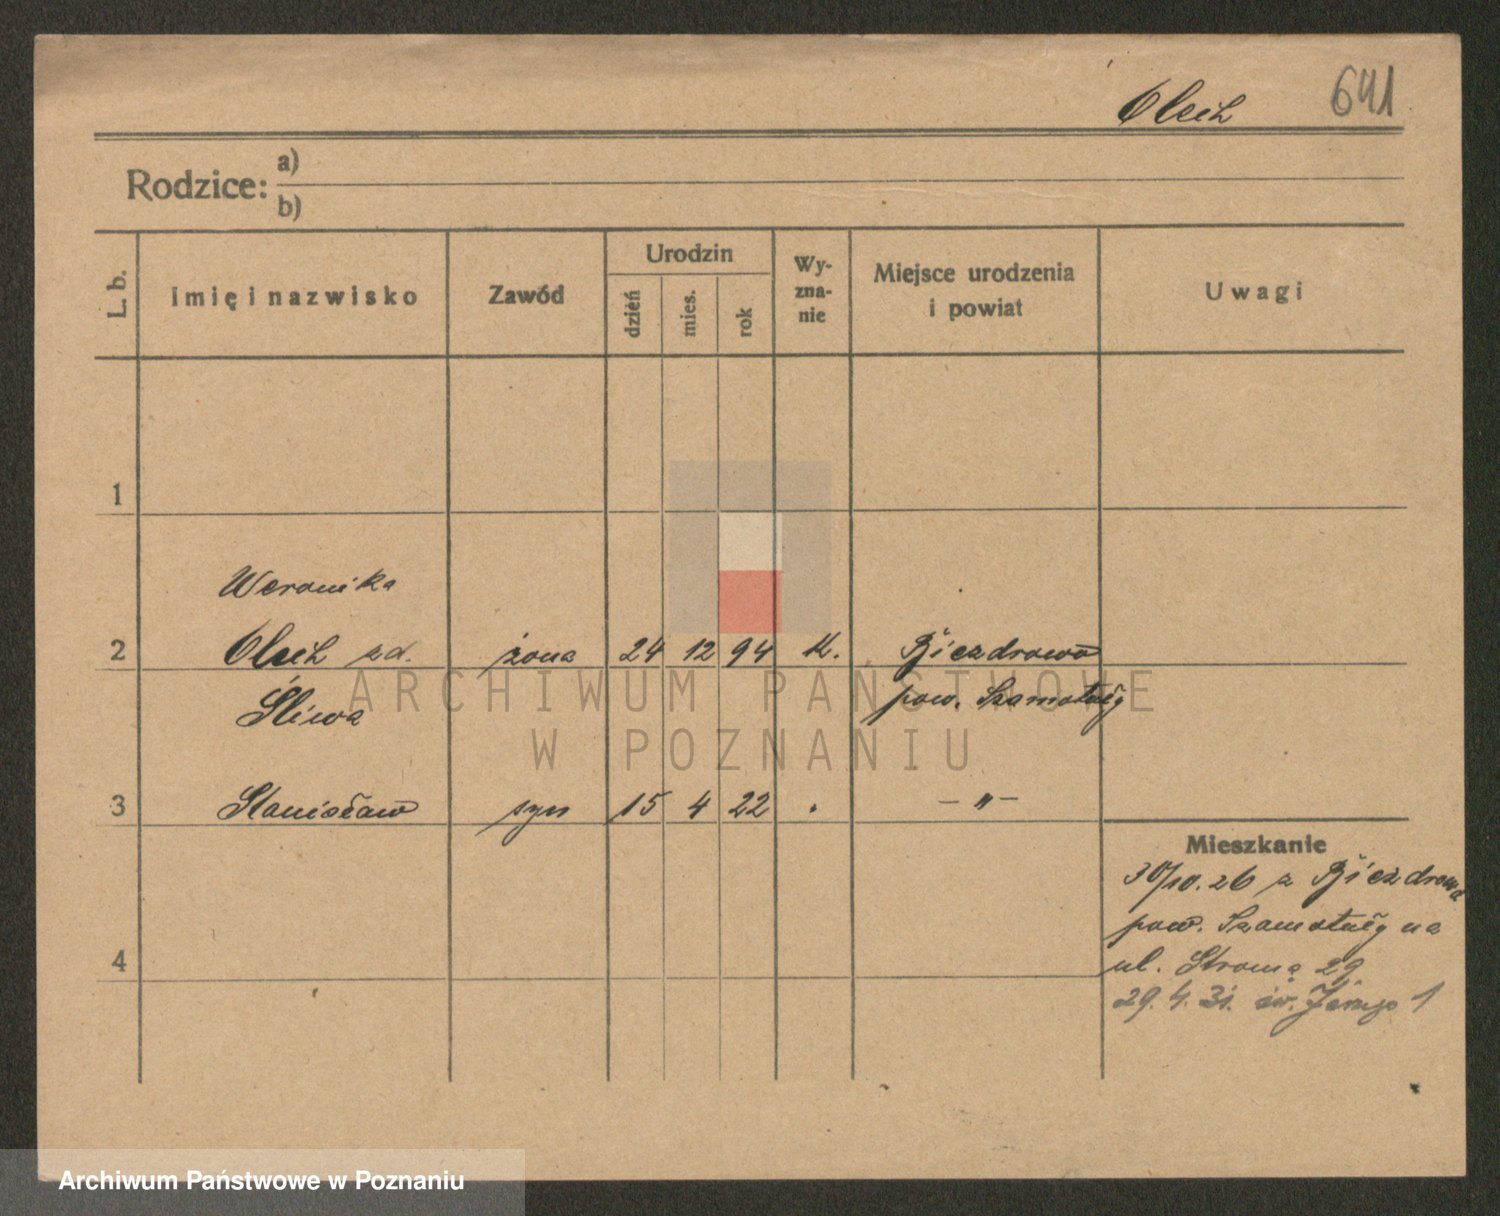 Olech 641
Rodzice: a)
b)
L. b. Imię i nazwisko Zawód Urodzin dzień mies. rok Wy-zna-nie Miejsce urodzenia i powiat Uwagi
1
Weronika
2 Olech zd. żona 24 12 94 K. Biezdrowo
Śliwa pow. Szamotuły
3 Stanisław syn 15 4 22 . – „ –
Mieszkanie
30/10.26 z Biezdrowa
pow. Szamotuły na
4
ul. Stromą 29
29.4.31. św. Jerzego 1
ARCHIWUM PAŃSTWOWE
W POZNANIU
Archiwum Państwowe w Poznaniu